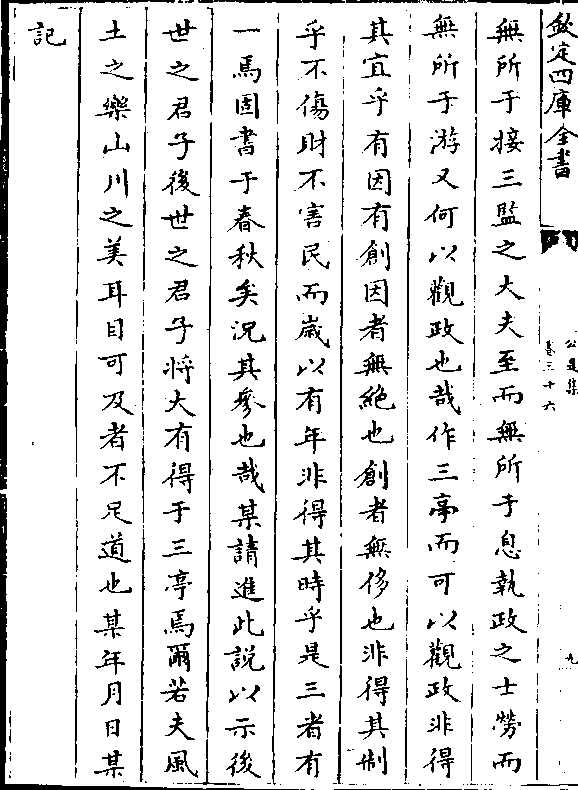 欽定四庫全書
公是集
卷三十六
九
無所于接三監之大夫至而無所于息執政之士勞而
無所于游又何以觀政也哉作三亭而可以觀政非得
其宜乎有因有創因者無絶也創者無侈也非得其制
乎不傷財不害民而歲以有年非得其時乎是三者有
一焉固書于春秋矣況其參也哉某請進此說以示後
世之君子後世之君子將大有得于三亭焉爾若夫風
土之樂山川之美耳目可及者不足道也某年月日某
記